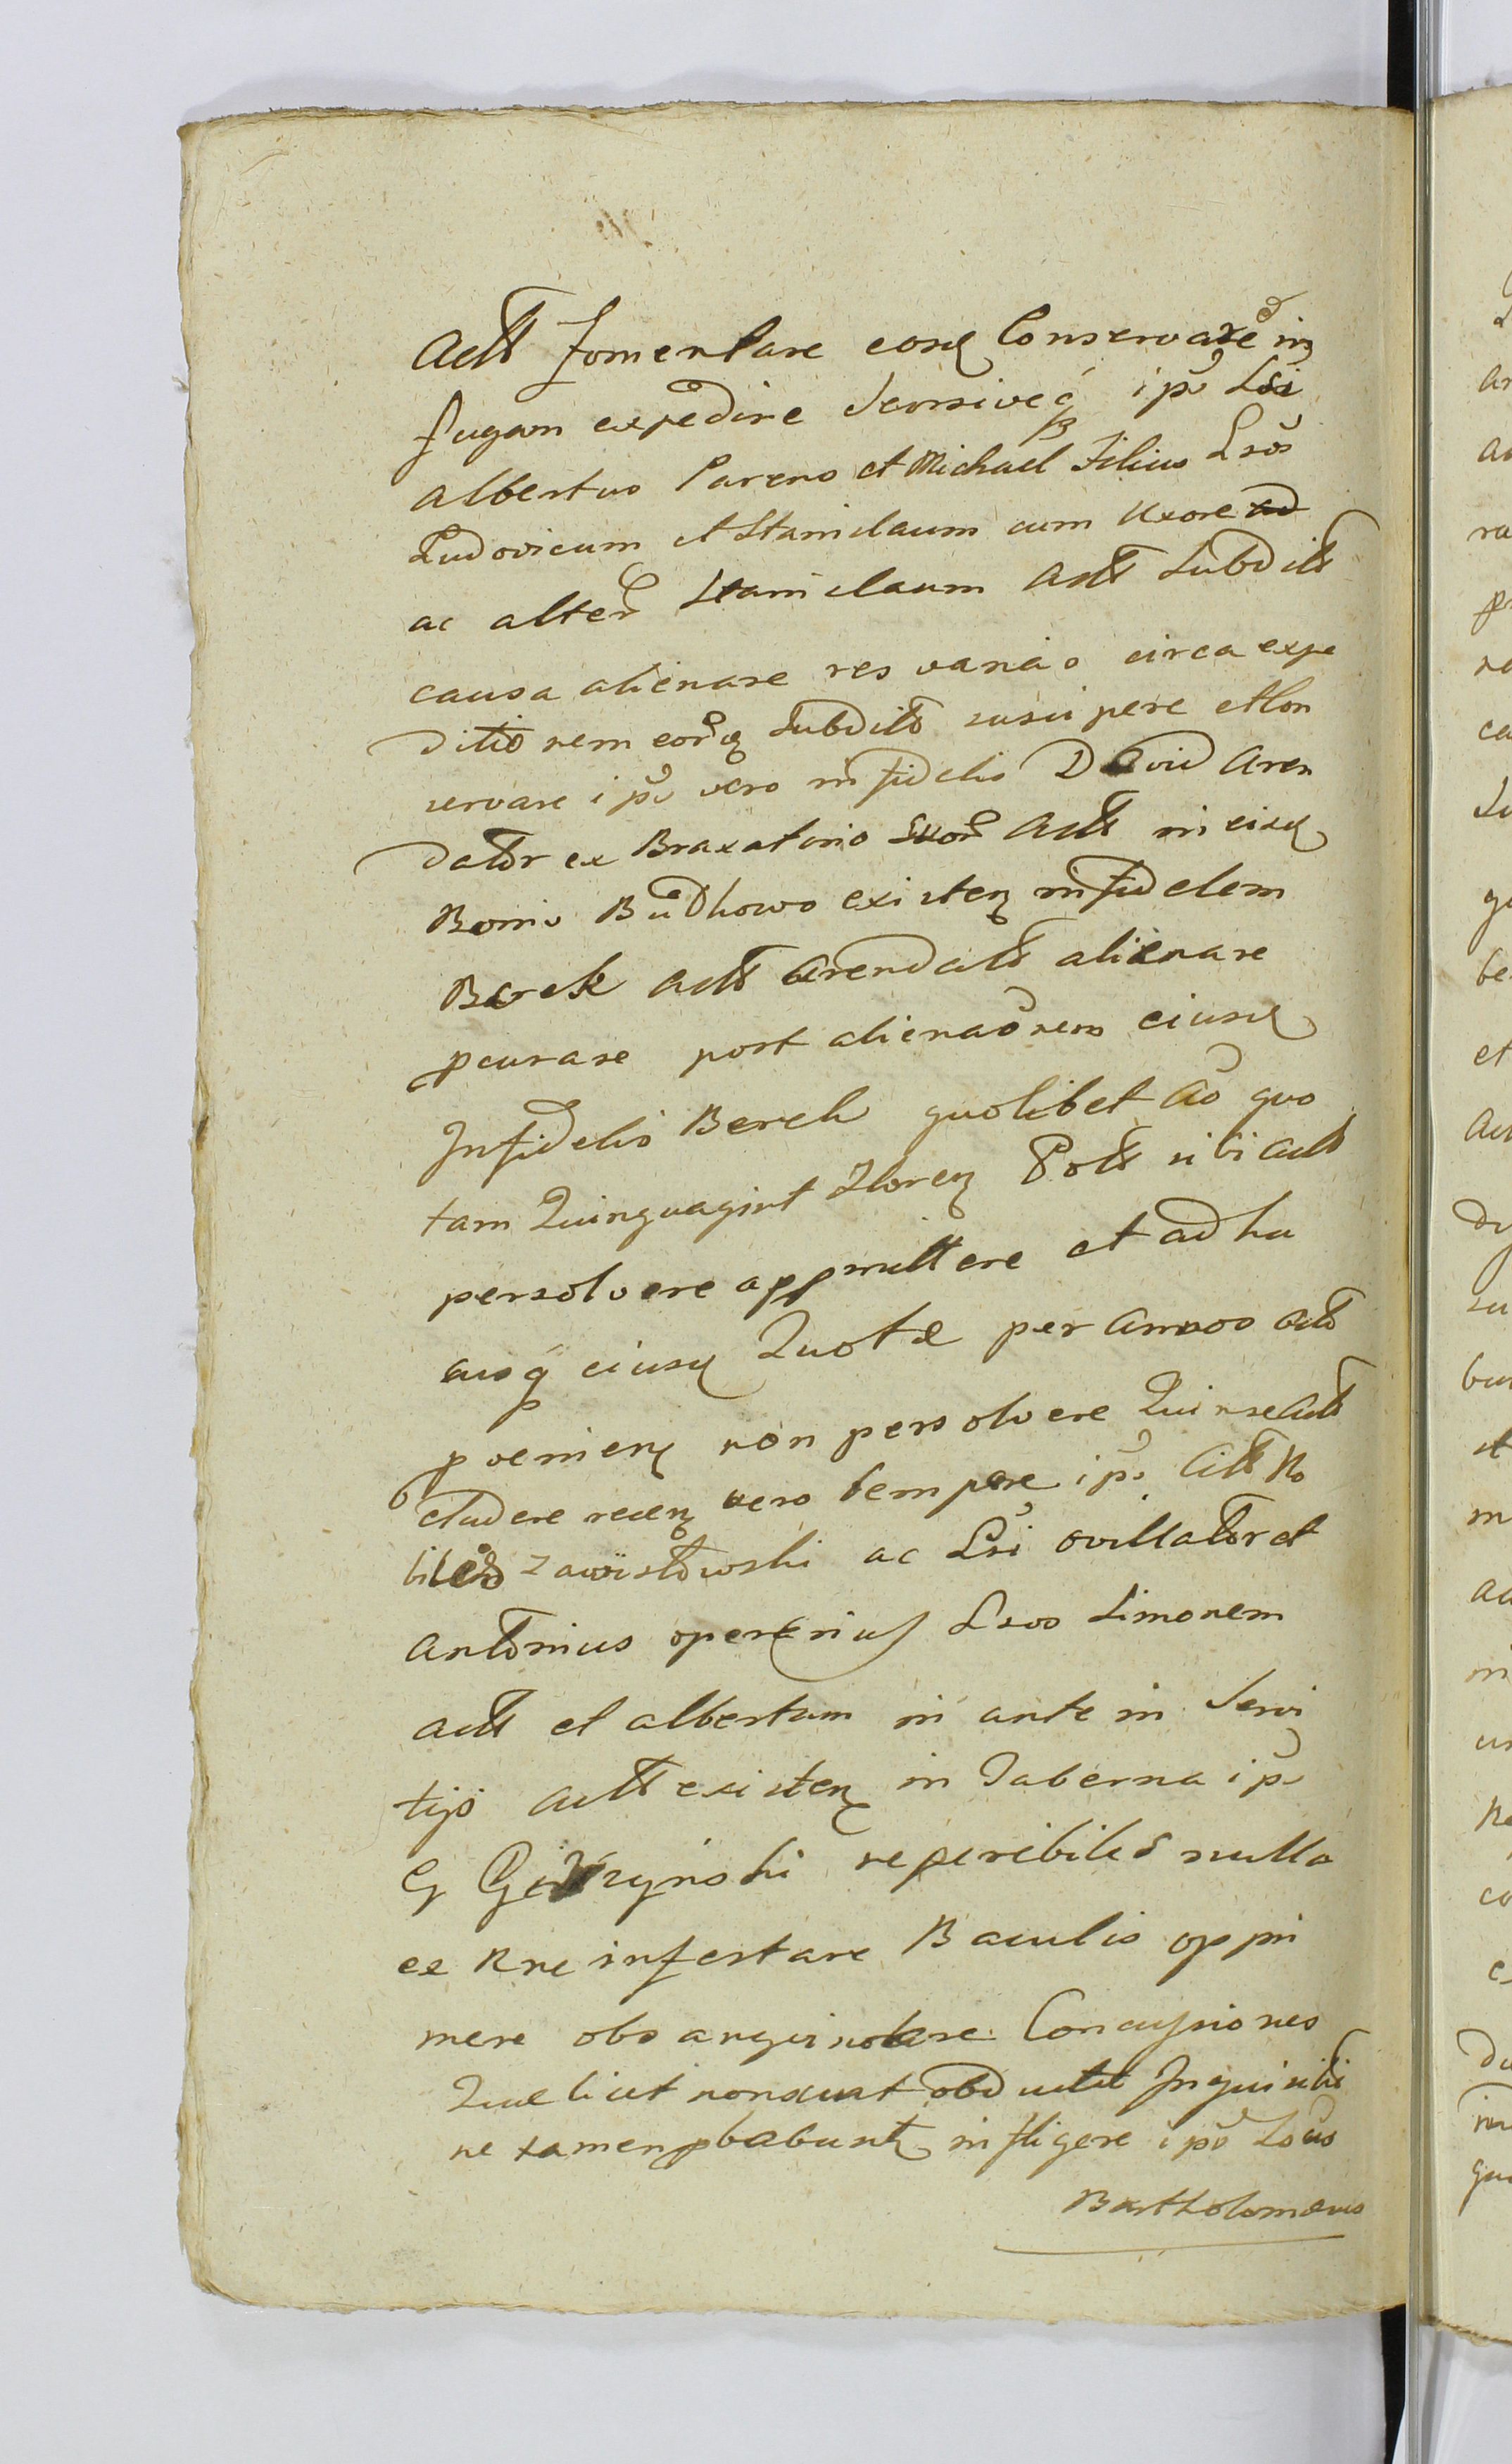 Actt fomentare eosq Conservare in
fugam expedire Seorsiveq ipi Lsi
Albertus Parens et Michael Filius Lsos
Ludovicum et Stanislaum cum Uxore ad
ac alter Stanislaum Actt Subditt
causa alienare res varias circa expe
ditionem eorq Subditt suscipere et Con
servare ips vero infidelis David Aren
dator ex Braxatorio Suor Actt in eisq
Bonis Budkowo existen infidelem
Berek Actt Arendatt alienare
pcurare post alienaonem eiusq
Infidelis Berek quolibet Ao quo
tam Quinquagint Floren Poll sibi Actt
persolvere appromittere et adhu
cusq eiusq Quotæ per Annos Actt
pvenien non persolvere Quin se Actt
eludere recen vero tempore ips Citt No
biles Zawistowski ac Lsi ovillator et
Antonius operarius Lsos Simonem
Actt et Albertum in ante in Servi
tijs Actt existen in Taberna ips
G reperibiles nulla
ex Rne infestare Baculis oppri
mere obsanguinolare Concussiones
Quæ licet non sunt obductæ Inquisitio
ne tamen pbabunt infligere ips Lsus
Bartholomæus